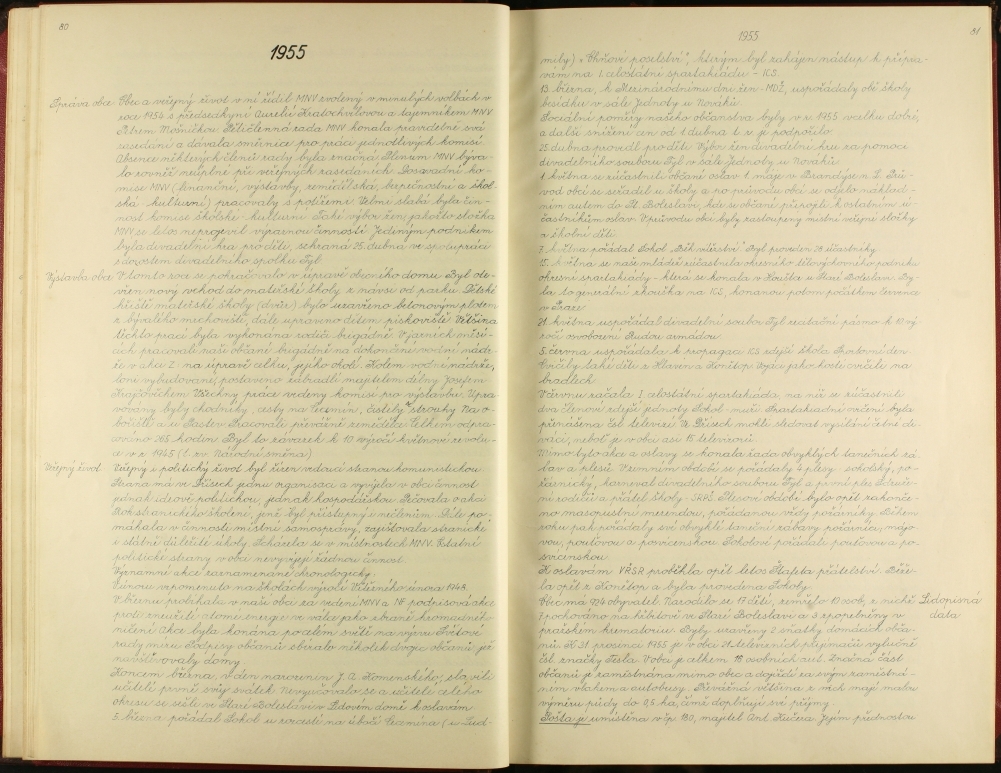 80
1955
Správa obce Obec a veřejný život v ní řídil MNV zvolený v minulých volbách v
roce 1954 s předsedkyní Aurelií Kratochvílovou a tajemníkem MNV
Petrem Mošničkou. Pětičlenná rada MNV konala pravidelně svá
zasedání a dávala směrnice pro práci jednotlivých komisí.
Absence některých členů rady byla značná. Plenum MNV býva-
lo rovněž neúplné při veřejných zasedáních. Dosavadní ko-
mise MNV (finanční, výstavby, zemědělská, bezpečnostní a škol-
ská kulturní) pracovaly s potížemi. Velmi slabá byla čin-
nost komise školské kulturní. Také výbor žen jakožto složka
MNV se letos neprojevil výraznou činností. Jediným podnikem
byla divadelní hra pro děti, sehraná 25. dubna ve spolupráci
s dorostem divadelního spolku Tyl.
Výstavba obce V tomto roce se pokračovalo v úpravě obecního domu. Byl ote-
vřen nový vchod do mateřské školy z návsi od parku. Dětské
hřiště mateřské školy (dvůr) bylo uzavřeno betonovým plotem
z bývalého mrchoviště, dále upraveno dětem pískoviště. Většina
těchto prací byla vykonána rodiči brigádně. V jarních měsí-
cích pracovali naši občané brigádně na dokončení vodní nádr-
že v akci Z: na úpravě celku, jejího okolí. Kolem vodní nádrže,
loni vybudované, postaveno zábradlí majitelem dílny Josefem
Krajčovičem. Všechny práce vedeny komisí pro výstavbu. Upra-
vovány byly chodníky, cesty na Zeleníku, čistěny strouhy Na o-
bořišti a u Pastev. Pracovali převážně zemědělci. Celkem odpra-
cováno 265 hodin. Byl to závazek k 10 výročí květnové revolu-
ce v r. 1945 (t. zv. Národní směna)
Veřejný život Veřejný i politický život byl řízen vedoucí stranou komunistickou.
Strana má v Dřísech jednu organisaci a vyvíjela v obci činnost
jednak ideově politickou, jednak hospodářskou. Pečovala o akci
Rok stranického školení, jenž byl přístupný i nečlenům. Dále po-
máhala v činnosti místní samosprávy, zajišťovala stranické
i státní důležité úkoly. Scházela se v místnostech MNV. Ostatní
politické strany v obci nevyvíjejí žádnou činnost.
Významné akce zaznamenané chronologicky.
V únoru vzpomenuto na školách výročí Vítězného února 1948.
V březnu probíhala v naší obci za vedení MNV a NF podpisová akce
proti zneužití atomové energie ve válce jako zbraně hromadného
ničení. Akce byla konána po celém světě na výzvu Světové
rady míru. Podpisy občanů sbíralo několik dvojic občanů, jež
navštěvovaly domy.
Koncem března, v den narozenin J. A. Komenského, slavili
učitelé první svůj svátek. Nevyučovalo se a učitelé celého
okresu se sešli ve Staré Boleslavi v Lidovém domě k oslavám.
5. března pořádal Sokol
81
1955
mily) „Ohňové poselství", kterým byl zahájen nástup k přípra-
vám na I. celostátní spartakiádu – ICS.
13. března, k Mezinárodnímu dni žen – MDŽ, uspořádaly obě školy
besídku v sále Jednoty u Nováků.
Sociální poměry našeho občanstva byly v r. 1955 vcelku dobré,
a další snížení cen od 1. dubna t. r. je podpořilo.
25. dubna provedl pro děti Výbor žen divadelní hru za pomoci
divadelního souboru Tyl v sále Jednoty u Nováků.
1. května se zúčastnili občané oslav 1. máje v Brandýse n. L. Prů-
vod obcí se seřadil u školy a po průvodu obcí se odjelo náklad-
ním autem do St. Boleslavi, kde se občané připojili k ostatním ú-
častníkům oslav. V průvodu obcí byly zastoupeny místní veřejné složky
a školní děti.
7. května pořádal Sokol „Běh vítězství". Byl proveden 28 účastníky.
15. května se naše mládež zúčastnila okresního tělovýchovného podniku
okresní spartakiády – která se konala v Houšťce u Staré Boleslavi. By-
la to generální zkouška na ICS, konanou potom počátkem července
v Praze.
21. května uspořádal divadelní soubor Tyl recitační pásmo k 10 vý-
ročí osvobození Rudou armádou.
5. června uspořádala k propagaci ICS zdejší škola Sportovní den.
Cvičily také děti z Hlavence a Konětop. Vojáci jako hosté cvičili na
bradlech.
V červnu začala I. celostátní spartakiáda, na níž se zúčastnili
dva členové zdejší jednoty Sokol – muži. Spartakiádní cvičení byla
přenášena čsl. televizí. Ve Dřísech mohli sledovat vysílání četní di-
váci, neboť je v obci asi 15 televizorů.
Mimo tyto akce a oslavy se konala řada obvyklých tanečních zá-
bav a plesů. V zimním období se pořádaly 4 plesy – sokolský, po-
žárnický, karneval divadelního souboru Tyl a první ples Sdruže-
ní rodičů a přátel školy – SRPŠ. Plesové období bylo opět zakonče-
no masopustní merendou, pořádanou vždy požárníky. Během
roku pak pořádaly své obvyklé taneční zábavy požárníci, májo-
vou, pouťovou a posvícenskou. Sokolové pořádali pouťovou a po-
svícenskou.
K oslavám VŘSR proběhla opět letos Štafeta přátelství. Běže-
la opět z Konětop a byla provedena Sokoly.
Obec má 924 obyvatel. Narodilo se 17 dětí, zemřelo 10 osob, z nichž Lidopisná
7 pochováno na hřbitově ve Staré Boleslavi a 3 zpopelněny v data
pražském krematoriu. Byly uzavřeny 2 sňatky domácích obča-
nů. K 31. prosinci 1955 je v obci 21 televisních přijímačů výlučně
čsl. značky Tesla. V obci je celkem 18 osobních aut. Značná část
občanů je zaměstnána mimo obec a dojíždí za svým zaměstná-
ním vlakem a autobusy. Převážná většina z nich mají malou
výměru půdy do 0,5 ha, čímž doplňují své příjmy.
Pošta je umístěna v čp. 130, majitel Ant. Kučera. Jejím přednostou